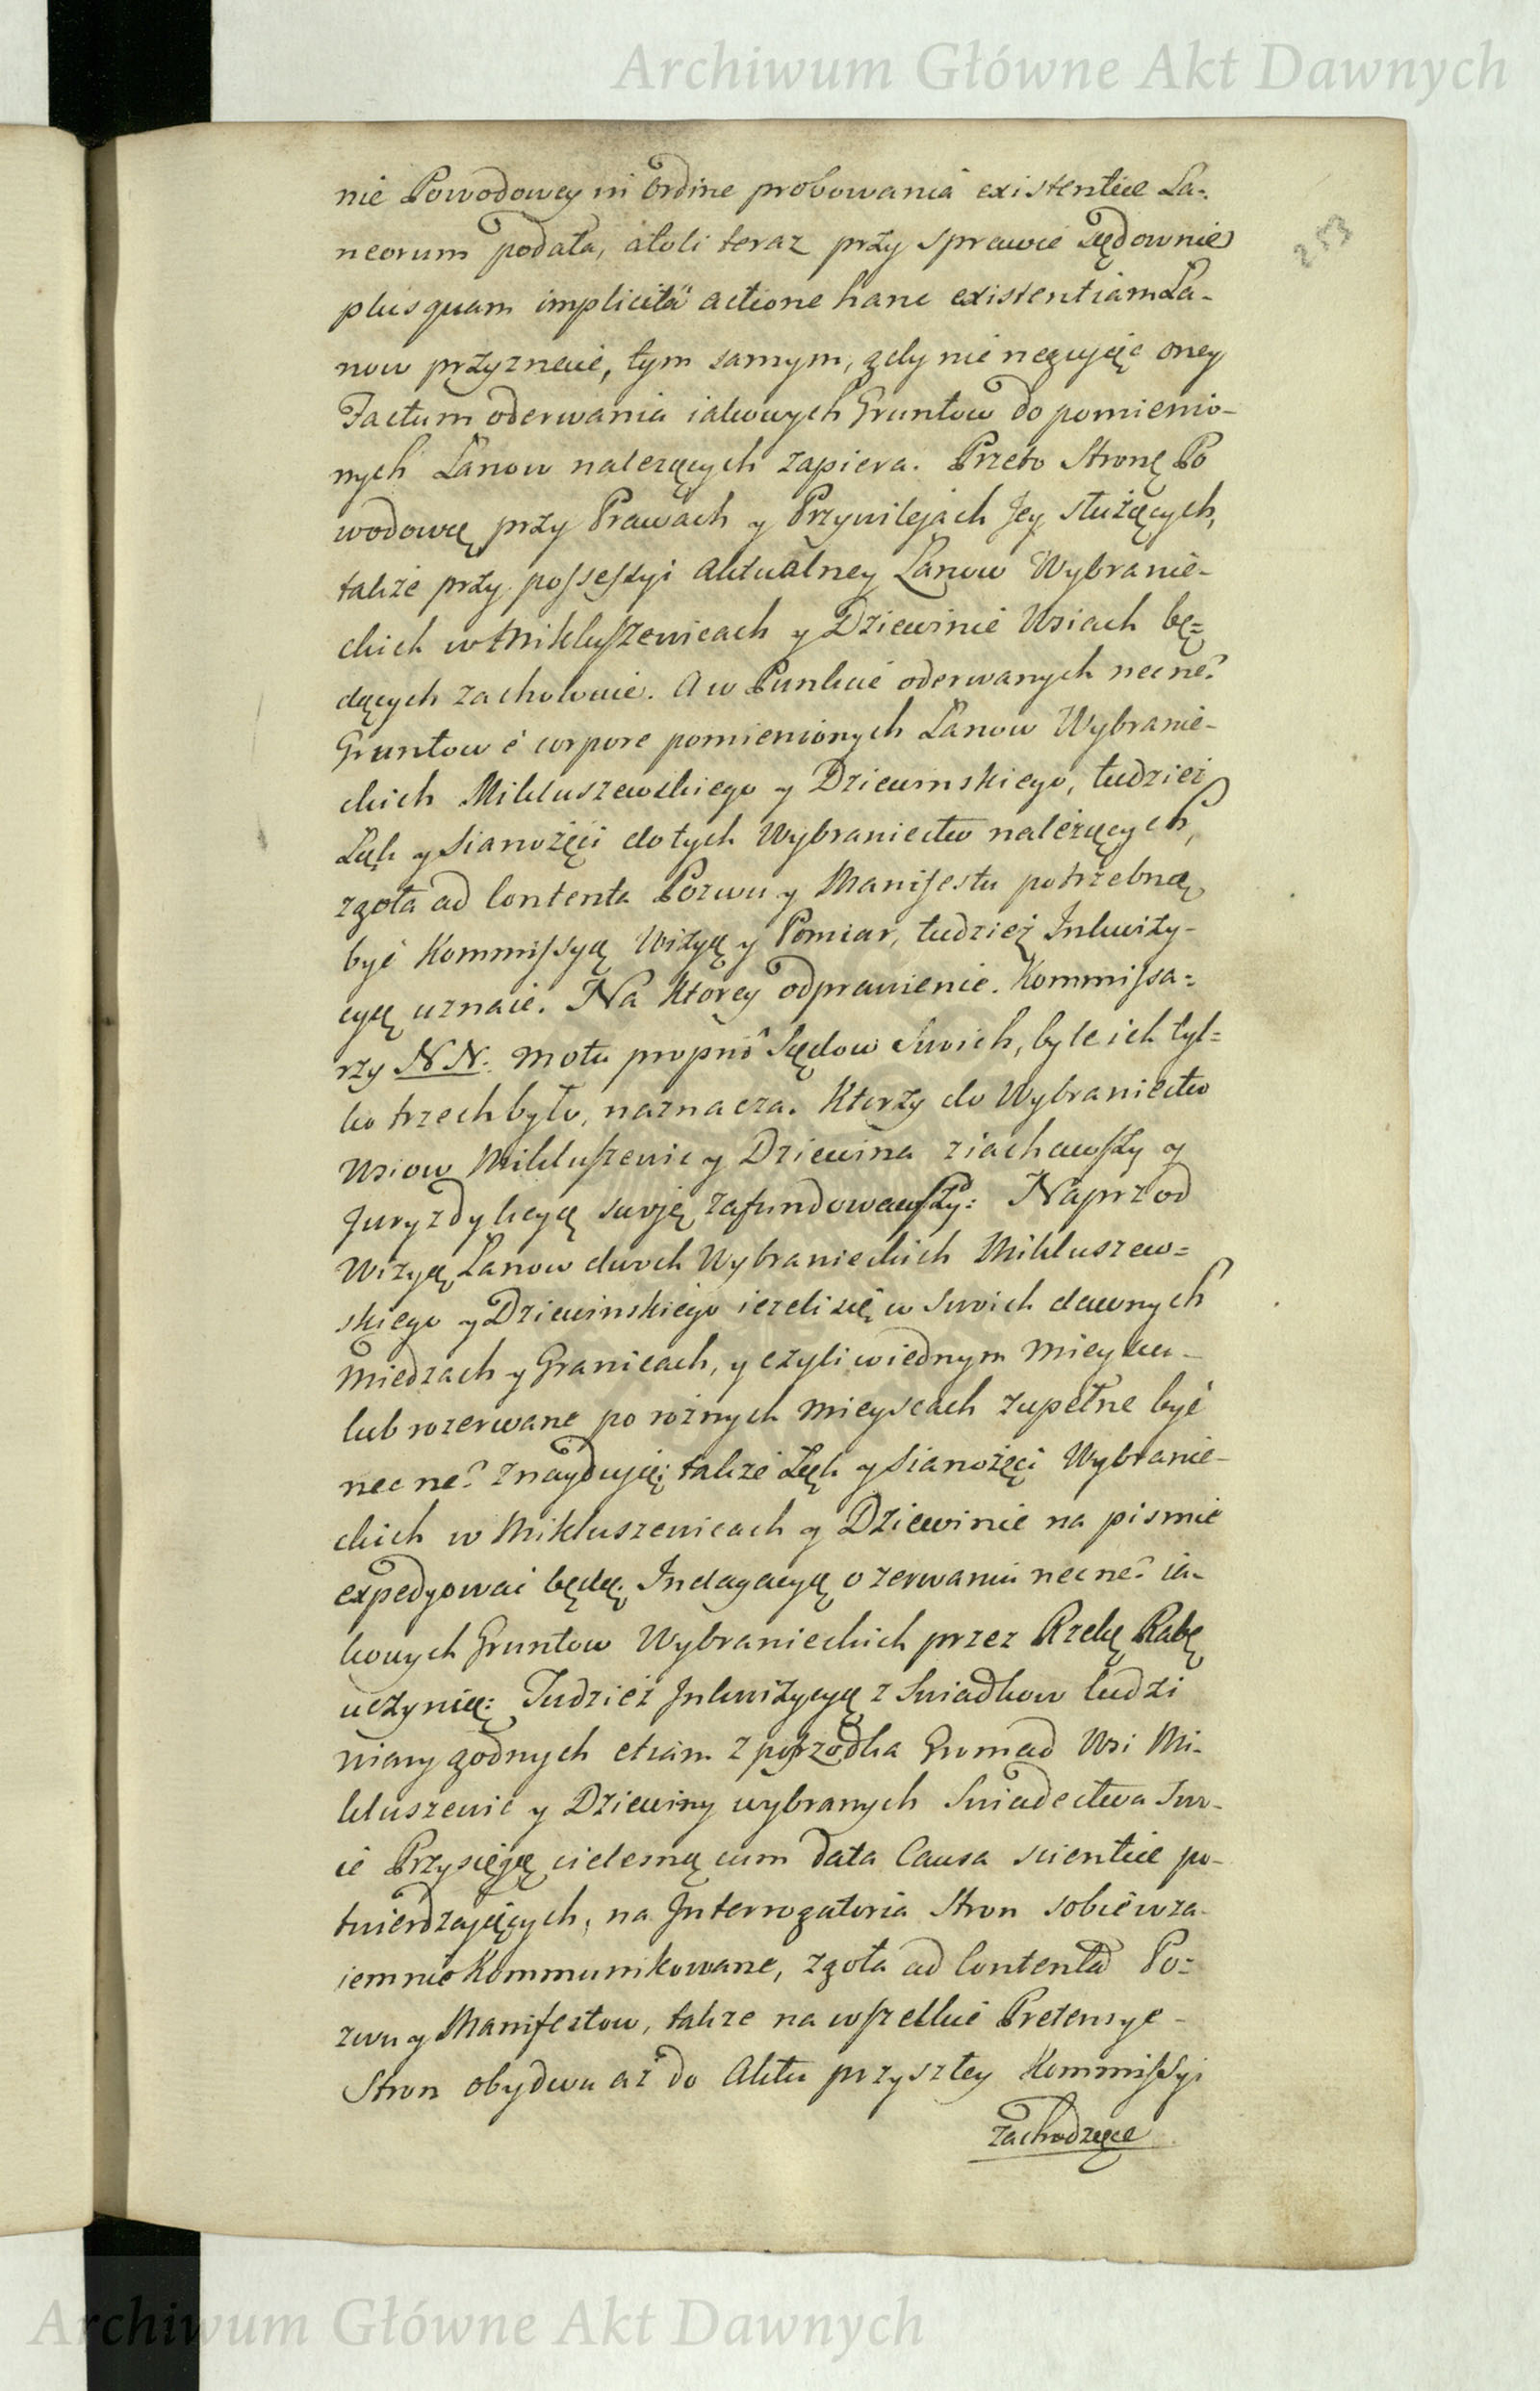 Archiwum Główne Akt Dawnych
253
nie Powodowey in ordine probowania existentiæ La-
neorum podała, atoli teraz przy sprawie sądownie
plusquam implicitâ actione hanc existentiam Ła-
now przyznaie, tym samym, gdy nie negując oney
Factum oderwania iakowych Gruntow do pomienio-
nych Łanow nalezących zapiera. Przeto Stronę Po
wodową przy Prawach y Przywilejach Jey służących,
także przy possessyi aktualney Łanow Wybranie-
ckich w Mikluszewicach y Dziewinie Wsiach bę=
dących zachowuie. A w Punkcie oderwanych necne?
Gruntow è corpore pomienionych Łanow Wybranie-
ckich Mikluszewskiego y Dziewinskiego, tudzież
Łąk y Sianożęci do tych Wybraniectw należących,
zgoła ad Contenta Pozwu y Manifestu potrzebną
być Kommissyą Wizyą y Pomiar, tudzież Inkwizy-
cyą uznaie. Na ktorey odprawienie. Kommissa=
rzy NN. motu propriô Sądow Swoich, byle ich tyl=
ko trzech było, naznacza. Ktorzy do Wybraniectw
Wsiow Mikluszewic y Dziewina ziachawszy y
Juryzdykcyą swoję zafundowawszy: Naprzod
Wizyą Łanow dwoch Wybranieckich Mikluszew=
skiego y Dziewinskiego iezeli się w swoich dawnych
Miedzach y Granicach, y czyli w iednym Mieyscu-
lub rozerwane po rożnych Mieyscach zupełne być
necne? znayduią; także Łąk y Sianożęci Wybranie-
ckich w Mikluszewicach y Dziewinie na pismie
expedyować będą. Indagacyą o zerwaniu necne? ia-
kowych Gruntow Wybranieckich przez Rzekę Rabę
uczynią: Tudzież Inkwizycyą z Swiadkow ludzi
wiary godnych etiam z posrzodka Gromad Wsi Mi-
kluszewic y Dziewiny wybranych Swiadectwa Swo-
ie Przysięgą cielesną cum data Causa scientiæ po-
twierdzaiących, na Interrogatoria Stron sobie wza-
iemnie Kommunikowane, zgoła ad Contenta Po=
zwu y Manifestow, takze na wszelkie Pretensye-
Stron obydwu aż do Aktu przyszłey Kommissyi
zachodzące
Archiwum Główne Akt Dawnych